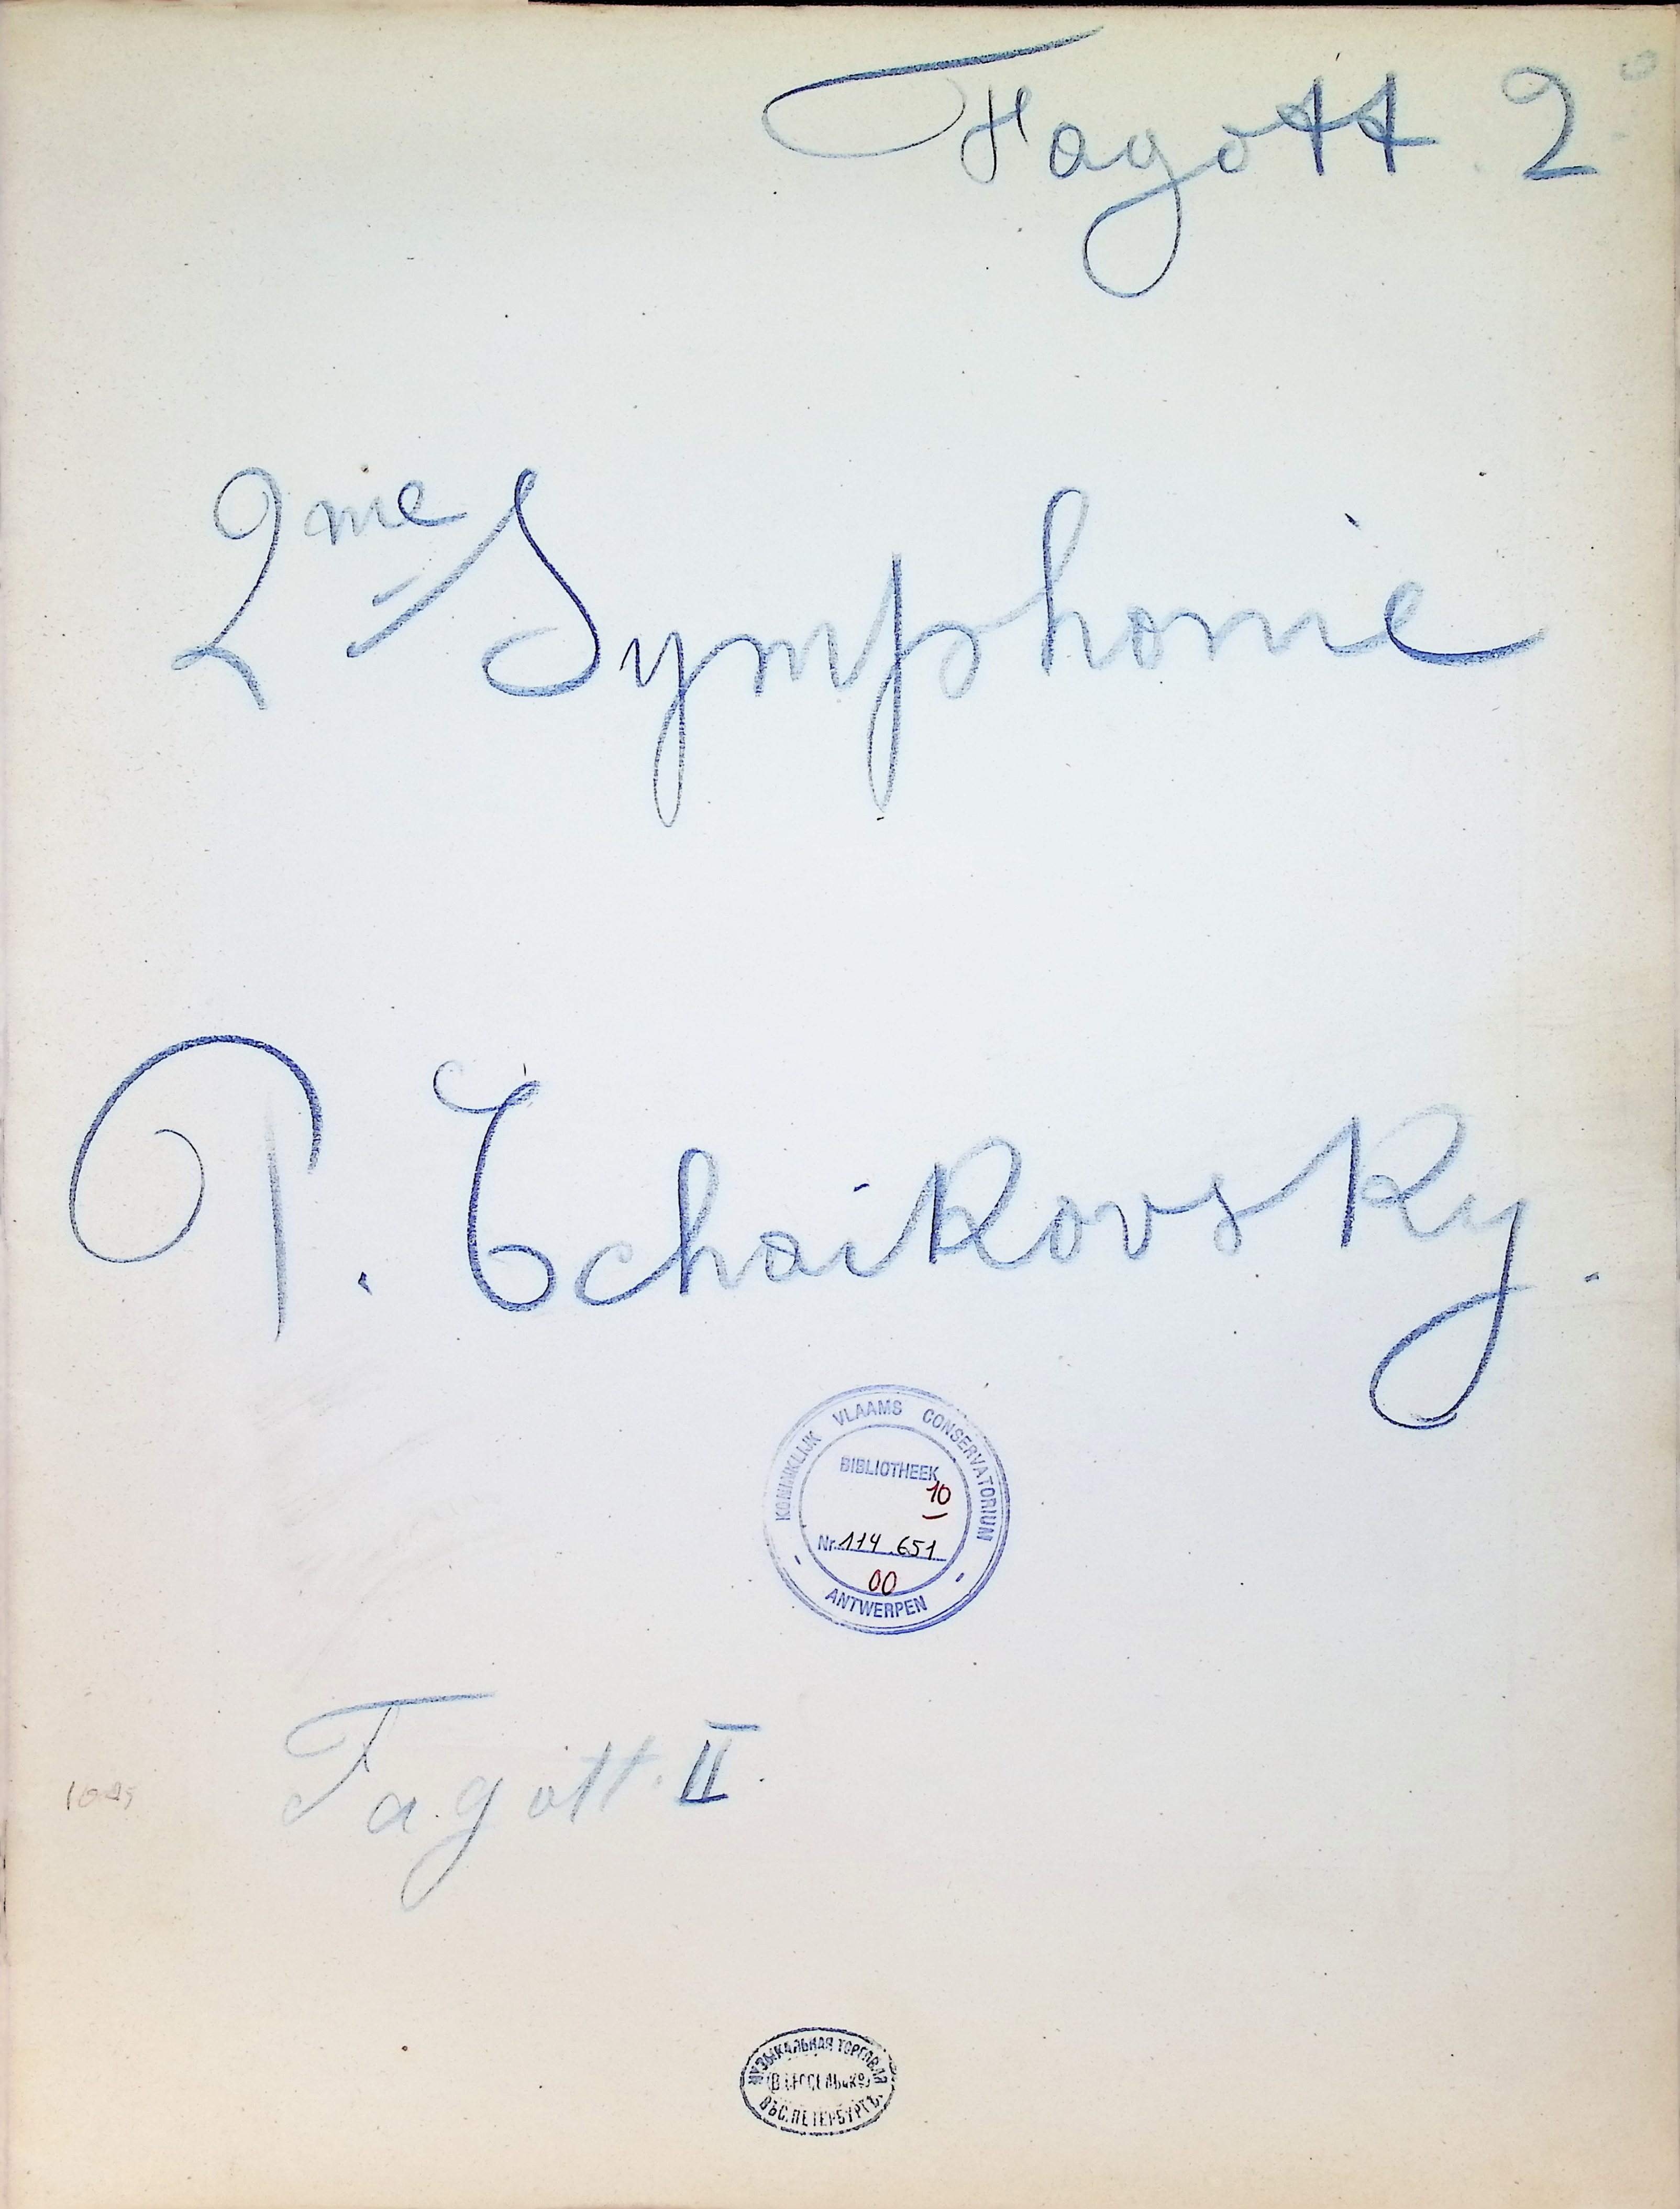 Fagott 2°
2me Symphonie
P. Tchaikovsky.
KONINKLIJK VLAAMS CONSERVATORIUM
BIBLIOTHEEK
10
Nr. 114.651
00
ANTWERPEN
Fagott. II.
МУЗЫКАЛЬНАЯ ТОРГОВЛЯ
ВЪ С. ПЕТЕРБУРГѢ